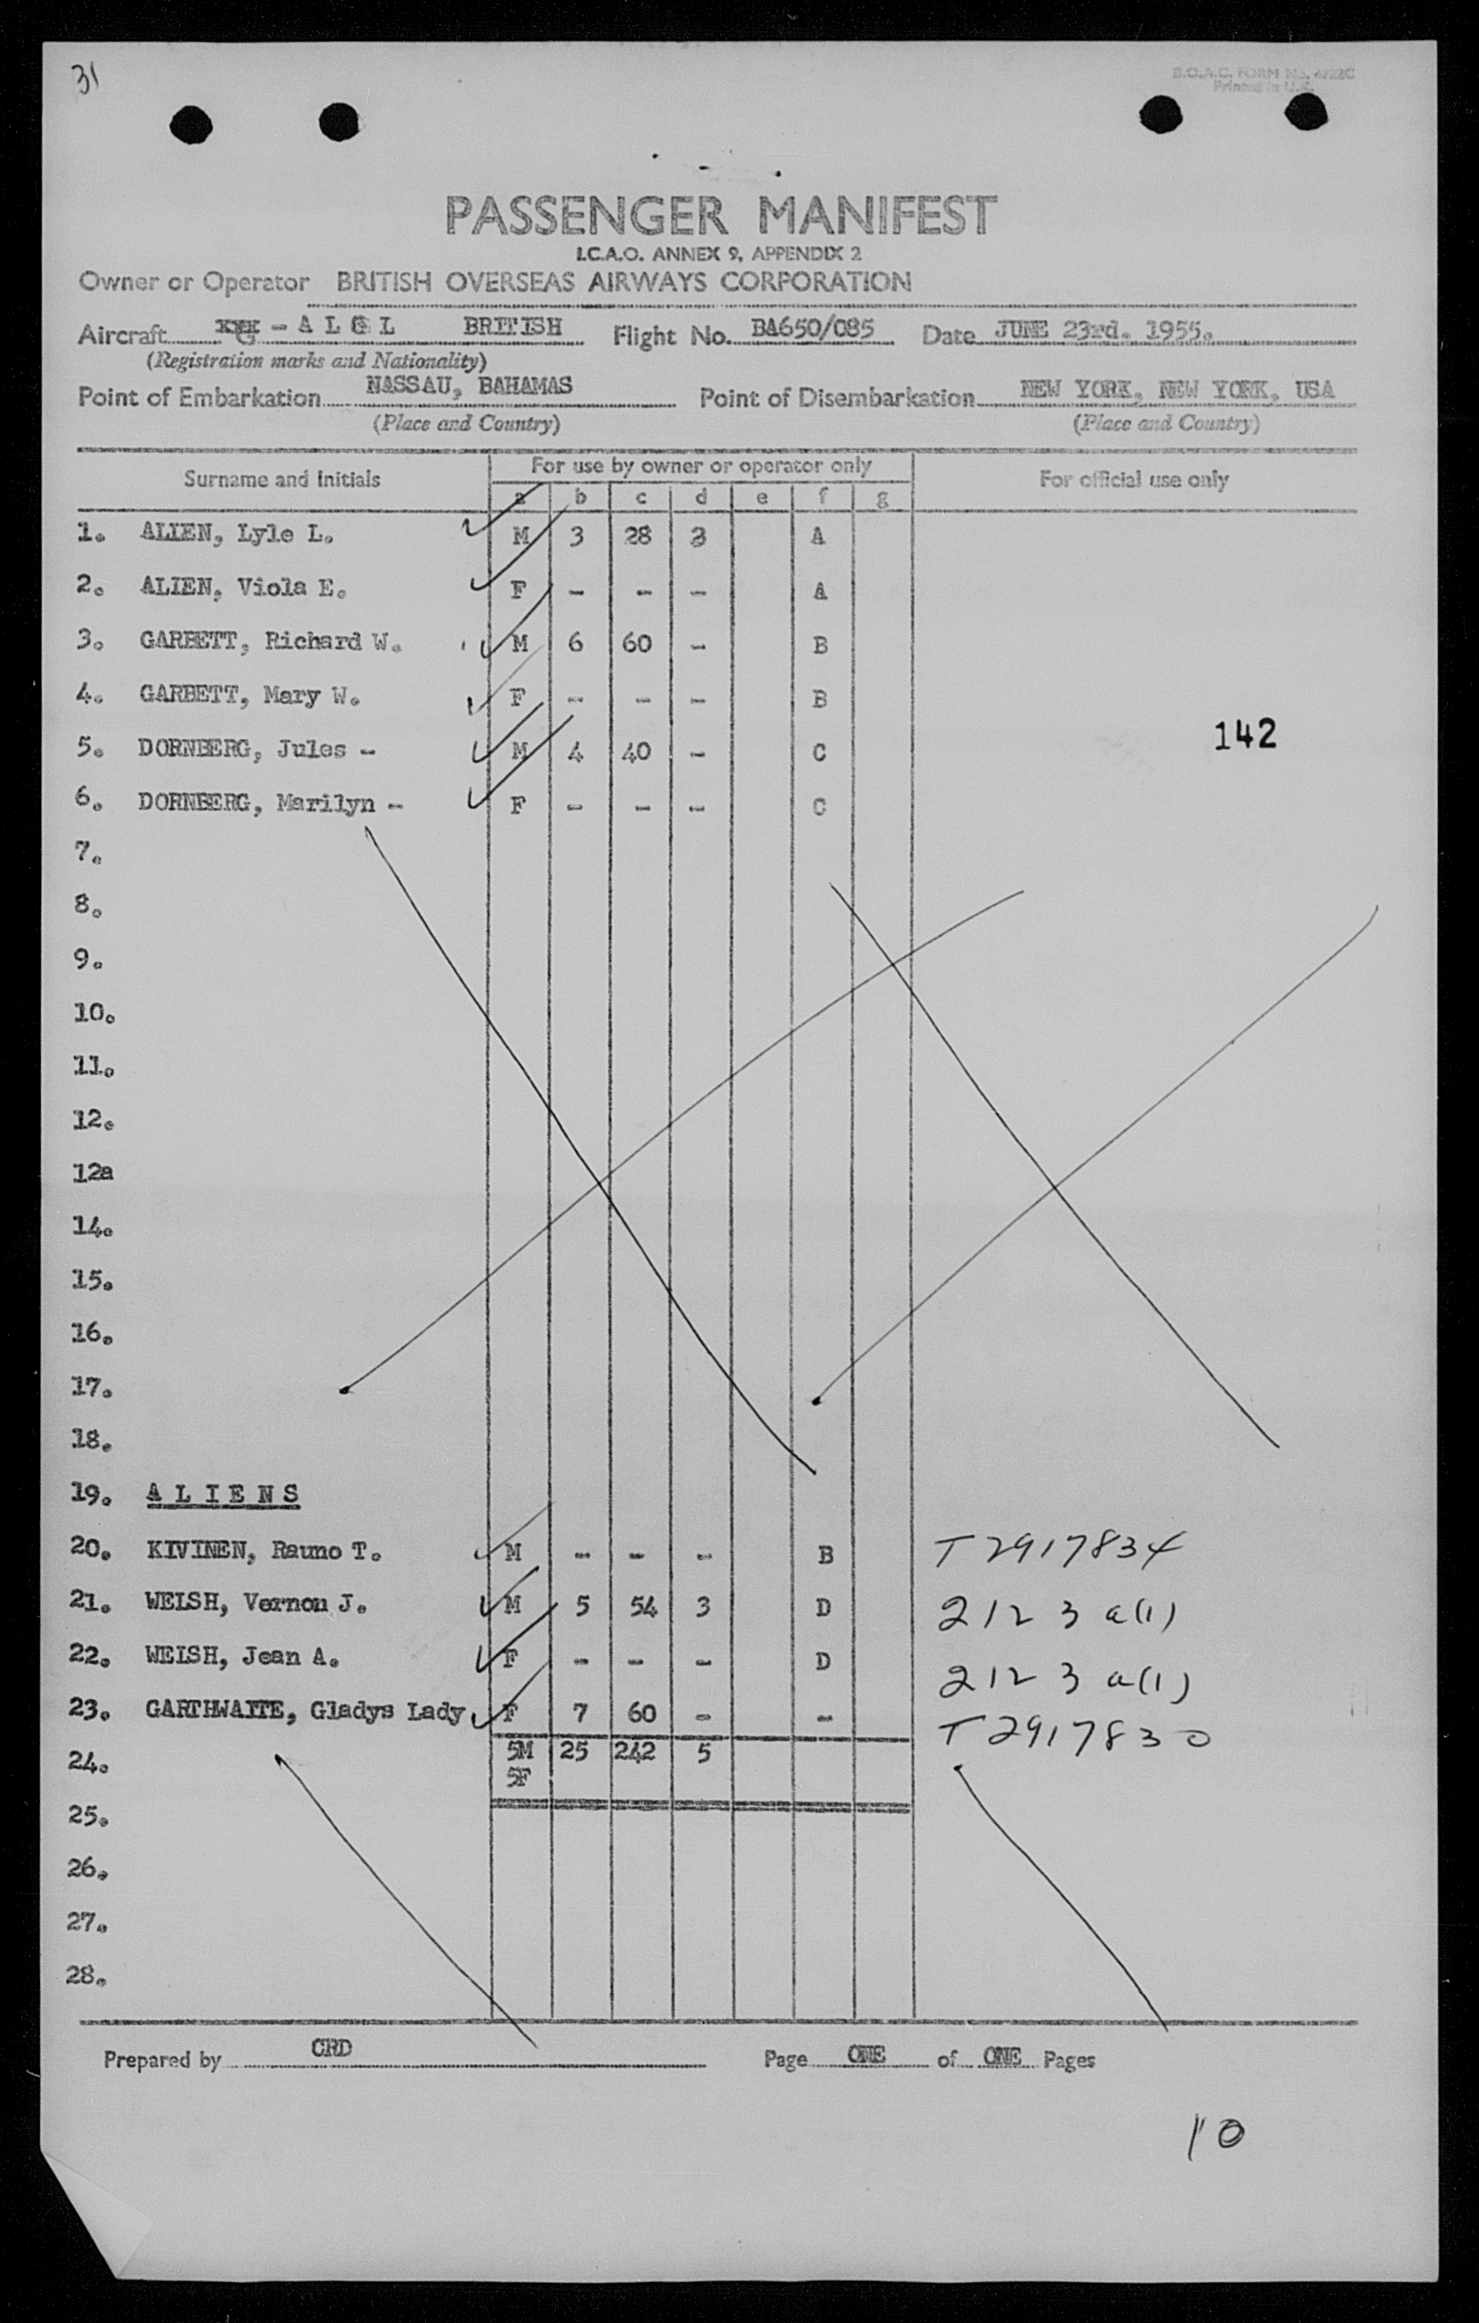 31
B.O.A.C. FORM No.
Printed in U.K.
PASSENGER MANIFEST
I.C.A.O. ANNEX 9, APPENDIX 2
Owner or Operator BRITISH OVERSEAS AIRWAYS CORPORATION
Aircraft G - A L C L BRITISH Flight No. BA650/085 Date JUNE 23rd. 1955.
(Registration marks and Nationality)
Point of Embarkation NASSAU, BAHAMAS Point of Disembarkation NEW YORK, NEW YORK, USA
(Place and Country) (Place and Country)
Surname and Initials For use by owner or operator only For official use only
a b c d e f g
1. ALIEN, Lyle L. M 3 28 3 A
2. ALIEN, Viola E. F - - - A
3. GARBETT, Richard W. M 6 60 - B
4. GARBETT, Mary W. F - - - B
142
5. DORNBERG, Jules - M 4 40 - C
6. DORNBERG, Marilyn - F - - - C
7.
8.
9.
10.
11.
12.
12a
14.
15.
16.
17.
18.
19. A L I E N S
20. KIVINEN, Rauno T. M - - - B T2917834
21. WELSH, Vernon J. M 5 54 3 D 212 3 a(1)
22. WELSH, Jean A. F - - - D 212 3 a(1)
23. GARTHWAITE, Gladys Lady F 7 60 - - T2917830
24. 5M 25 242 5
5F
25.
26.
27.
28.
Prepared by CRD Page ONE of ONE Pages
10